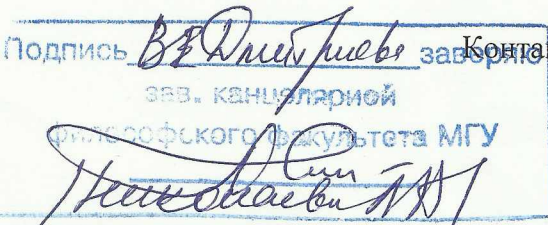 Подпись В Е Дмитриева заверяю Конта
зав. канцелярией
философского факультета МГУ